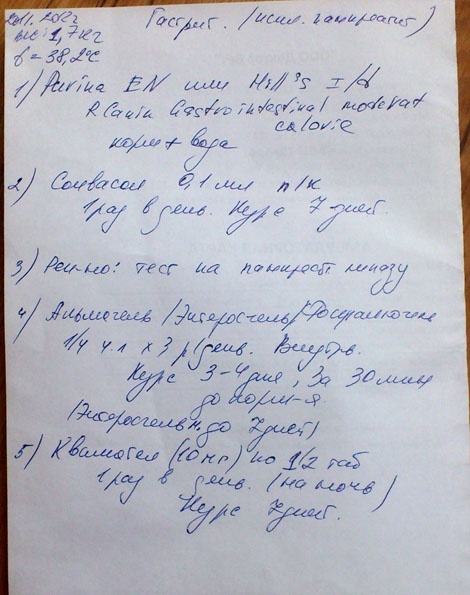 20.11.2012 Гастрит. (искл. панкреатит)
вес: 1,7 кг
t = 38,2°C
1) Purina EN или Hill's I/d
R.Canin Gastrointestinal moderat
calorie
корм + вода
2) Солвасол 0,1 мл п/к
1 раз в день. Курс 7 дней.
3) Рек-но: тест на панкреат. липазу
4) Альмагель/Энтеросгель/Фосфалюгель
1/4 ч.л х 3 р/день. Внутрь.
Курс 3-4 дня, за 30 мин
до корм-я.
(Энтеросгель м. до 7 дней)
5) Квамател (10 мг) по 1/2 таб
1 раз в день. (на ночь)
Курс 7 дней.